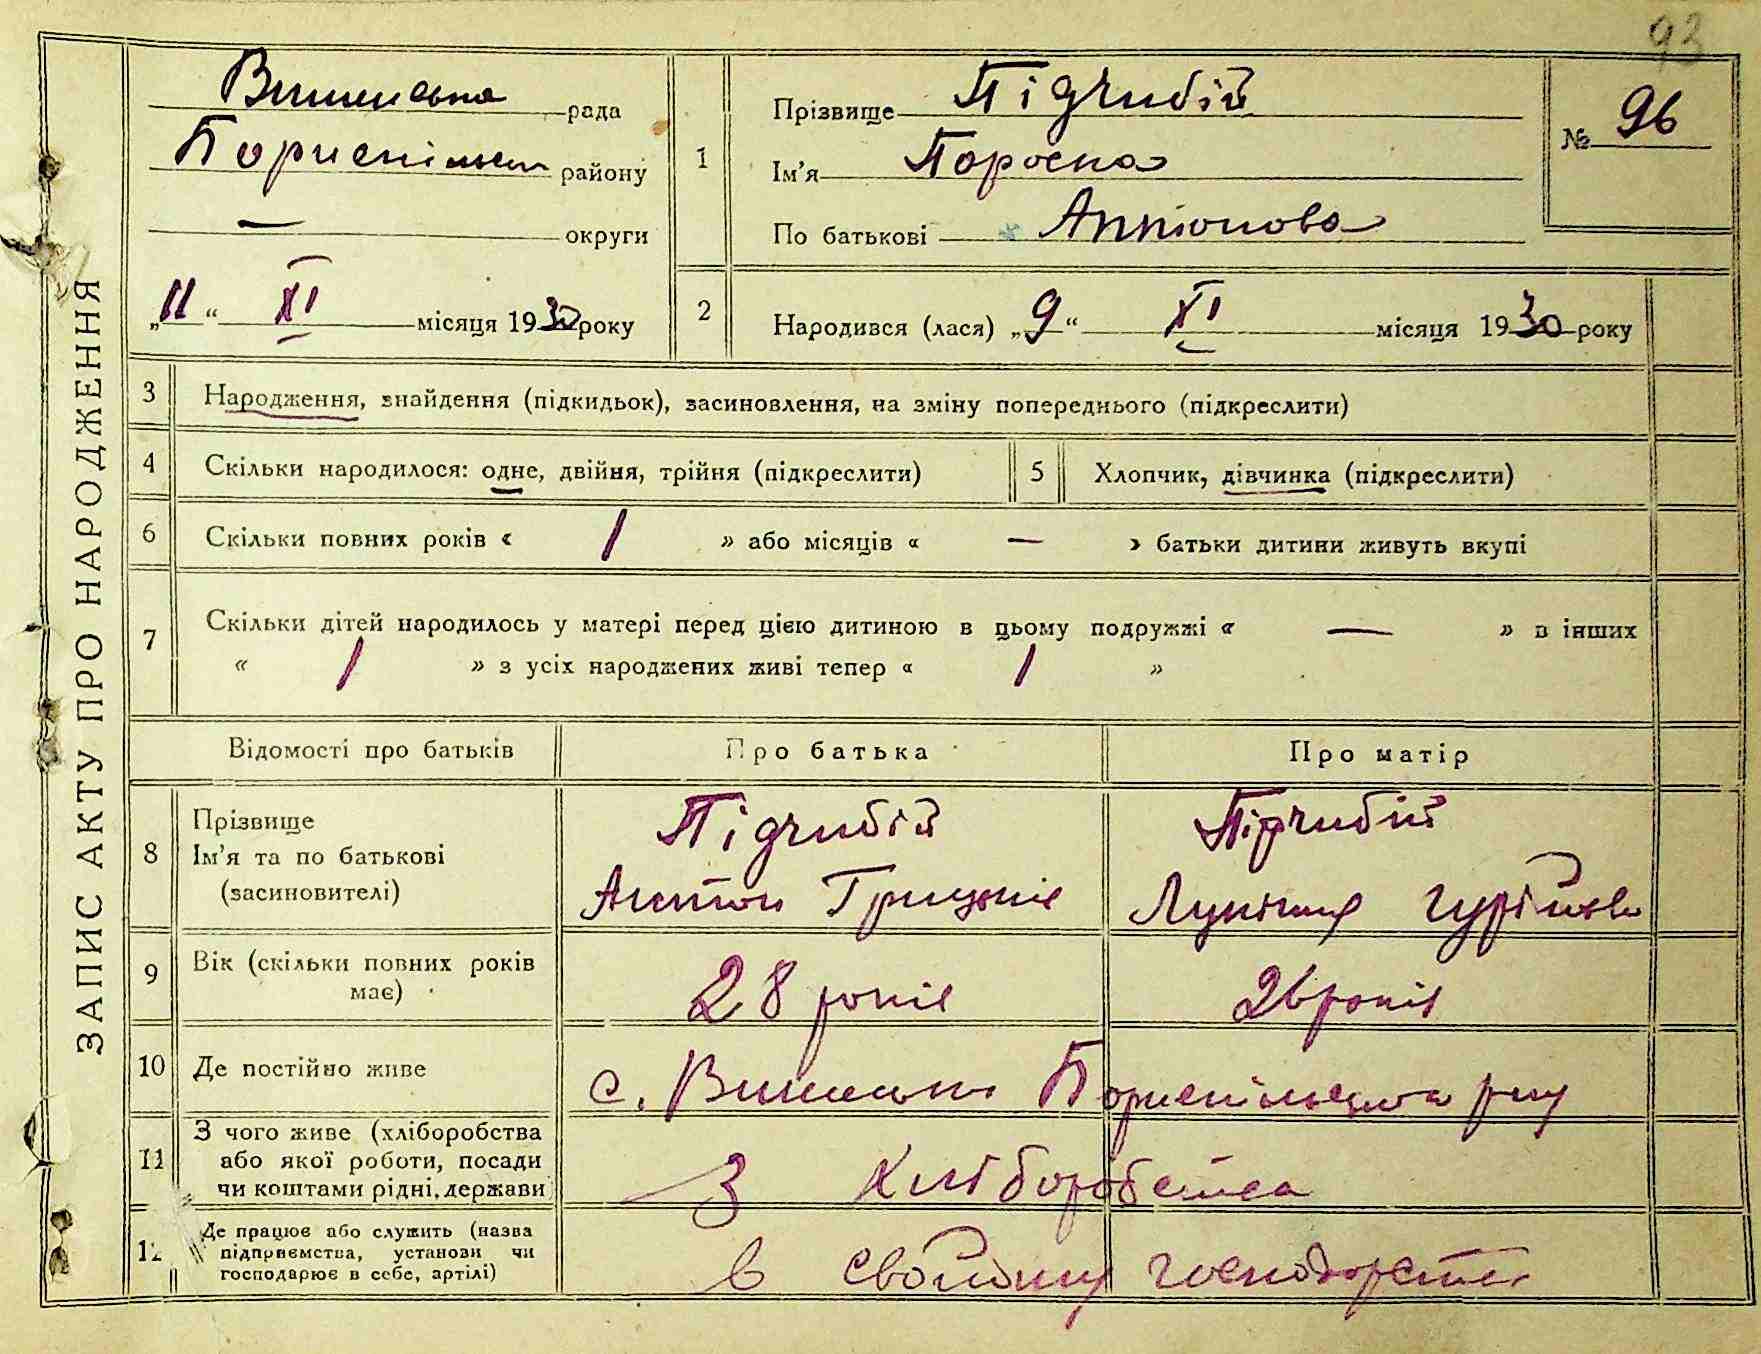 93
ЗАПИС АКТУ ПРО НАРОДЖЕННЯ
Вишеньська рада
Бориспільськ району
— округи
„11“ XI місяця 1930 року
1
Прізвище Підчибій
Ім'я Пороска
По батькові Антонова
№ 96
2
Народився (лася) „9“ XI місяця 1930 року
3 Народження, знайдення (підкидьок), засиновлення, на зміну попереднього (підкреслити)
4 Скільки народилося: одне, двійня, трійня (підкреслити)
5 Хлопчик, дівчинка (підкреслити)
6 Скільки повних років « 1 » або місяців « — » батьки дитини живуть вкупі
7 Скільки дітей народилось у матері перед цією дитиною в цьому подружжі « — » в інших
« 1 » з усіх народжених живі тепер « 1 »
Відомості про батьків Про батька Про матір
8 Прізвище
Ім'я та по батькові
(засиновителі)
Підчибій
Антон Грицьків
Підчибій
Лукія Гурійова
9 Вік (скільки повних років
має)
28 років
26 років
10 Де постійно живе
с. Вишеньки Бориспільського р-ну
11 З чого живе (хліборобства
або якої роботи, посади
чи коштами рідні, держави
З хліборобства
12 Де працює або служить (назва
підприємства, установи чи
господарює в себе, артілі)
в свойому господарстві